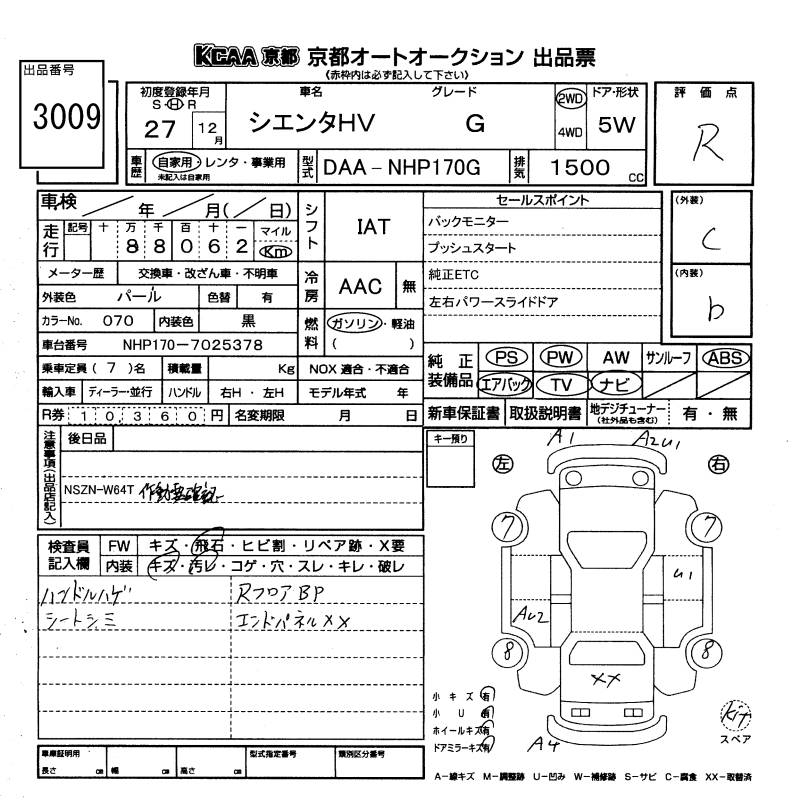 KCAA 京都 京都オートオークション 出品票
(赤枠内は必ず記入して下さい)
出品番号
3009
初度登録年月
S・H・R
27 12月
車名
シエンタHV
グレード
G
2WD
4WD
ドア・形状
5W
評価点
R
車歴
自家用・レンタ・事業用
未記入は自家用
型式
DAA-NHP170G
排気
1500 CC
車検 年 月( 日)
走行
記号 十 万 千 百 十 一 マイル
88062 Km
シフト
IAT
セールスポイント
バックモニター
プッシュスタート
純正ETC
左右パワースライドドア
(外装)
C
(内装)
b
メーター歴 交換車・改ざん車・不明車
外装色 パール 色替 有
冷房
AAC 無
カラーNo. 070 内装色 黒
燃料
ガソリン・軽油
( )
車台番号 NHP170-7025378
乗車定員(7)名 積載量 Kg NOX 適合・不適合
輸入車 ディーラー・並行 ハンドル 右H・左H モデル年式 年
R券 10360円 名変期限 月 日
純正装備品
PS PW AW サンルーフ ABS
エアバック TV ナビ
新車保証書 取扱説明書 地デジチューナー(社外品も含む) 有・無
注意事項(出品店記入)
後日品
NSZN-W64T
キー預り
左 右
A1 A2U1
7 7
U1
AU2
8 8
XX
A4
検査員記入欄
FW キズ・飛石・ヒビ割・リペア跡・X要
内装 キズ・汚レ・コゲ・穴・スレ・キレ・破レ
ハンドルハゲ RフロアBP
シートシミ エンドパネルXX
小キズ有
小U有
ホイールキズ有
ドアミラーキズ有
kit
スペア
車庫証明用
長さ cm 幅 cm 高さ cm
型式指定番号
類別区分番号
A-線キズ M-調整跡 U-凹み W-補修跡 S-サビ C-腐食 XX-取替済